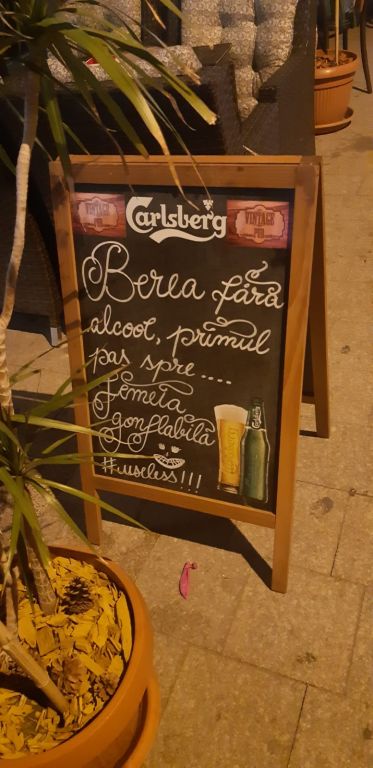 VINTAGE PUB Carlsberg VINTAGE PUB
Berea fără
alcool, primul
pas spre ....
femeia
gonflabilă
#useless!!!
Carlsberg